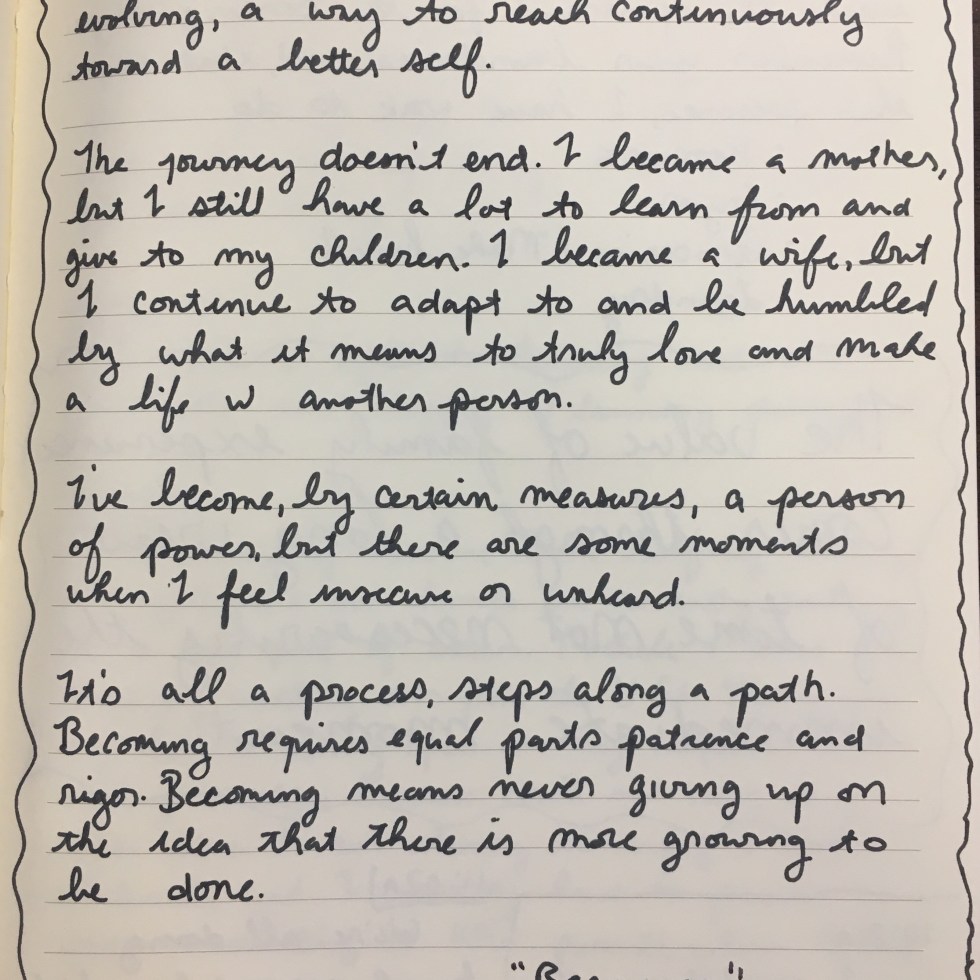 evolving, a way to reach continuously
toward a better self.
The journey doesn't end. I became a mother,
but I still have a lot to learn from and
give to my children. I became a wife, but
I continue to adapt to and be humbled
by what it means to truly love and make
a life w another person.
I've become, by certain measures, a person
of power, but there are some moments
when I feel insecure or unheard.
It's all a process, steps along a path.
Becoming requires equal parts patience and
rigor. Becoming means never giving up on
the idea that there is more growing to
be done.